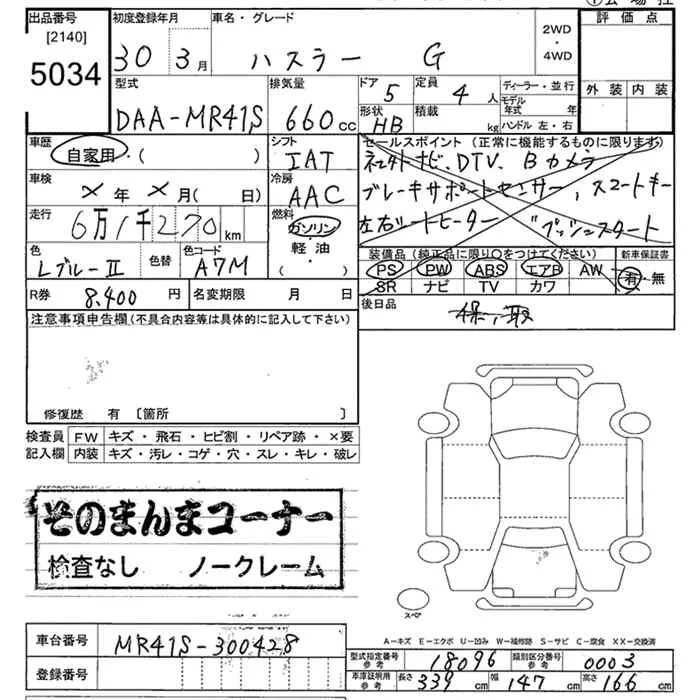 出品番号
[2140]
5034
初度登録年月
30年 3月
車名・グレード
ハスラー G
2WD
・
4WD
評価点
外装 内装
型式
DAA-MR41S
排気量
660cc
ドア
5
定員
4人
形状
HB
積載
kg
ディーラー・並行
モデル年式 年
ハンドル 左・右
車歴
自家用・( )
シフト
IAT
車検
×年×月( 日)
冷房
AAC
走行
6万1千270km
燃料
ガソリン
軽・油
・( )
色
LブルーⅡ
色替
色コード
A7M
セールスポイント (正常に機能するものに限ります)
ネットナビ、DTV、Bカメラ
ブレーキサポートセンサー、スマートキー
左右シートヒーター プッシュスタート
装備品(純正品に限り○をつけてください)
PS PW ABS エアB AW
SR ナビ TV カワ
新車保証書
有・無
R券
8,400円
名変期限 月 日
後日品
保、取
注意事項申告欄(不具合内容等は具体的に記入して下さい)
修復歴 有 〔箇所 〕
検査員記入欄
FW キズ・飛石・ヒビ割・リペア跡・×要
内装 キズ・汚レ・コゲ・穴・スレ・キレ・破レ
そのまんまコーナー
検査なし ノークレーム
スペア
A-キズ E-エクボ U-凹み W-補修跡 S-サビ C-腐食 XX-交換済
車台番号
MR41S-300428
登録番号
型式指定番号
参考
18096
類別区分番号
参考
0003
車庫証明用
参考
長さ 339cm
幅 147cm
高さ 166cm